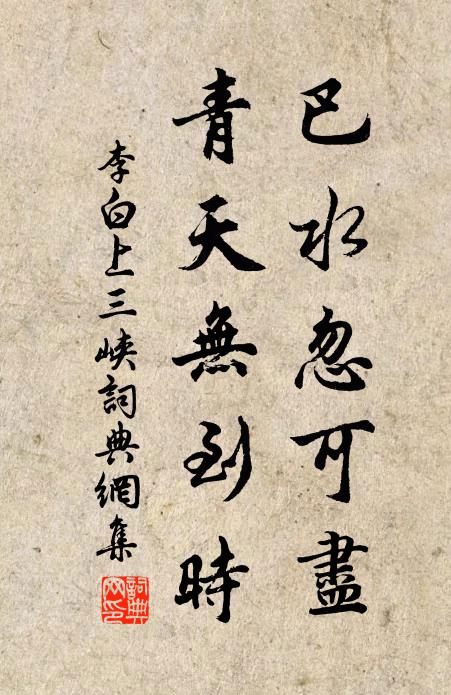 巴水忽可盡
青天無到時
李白上三峽詞典網集
詞典網印